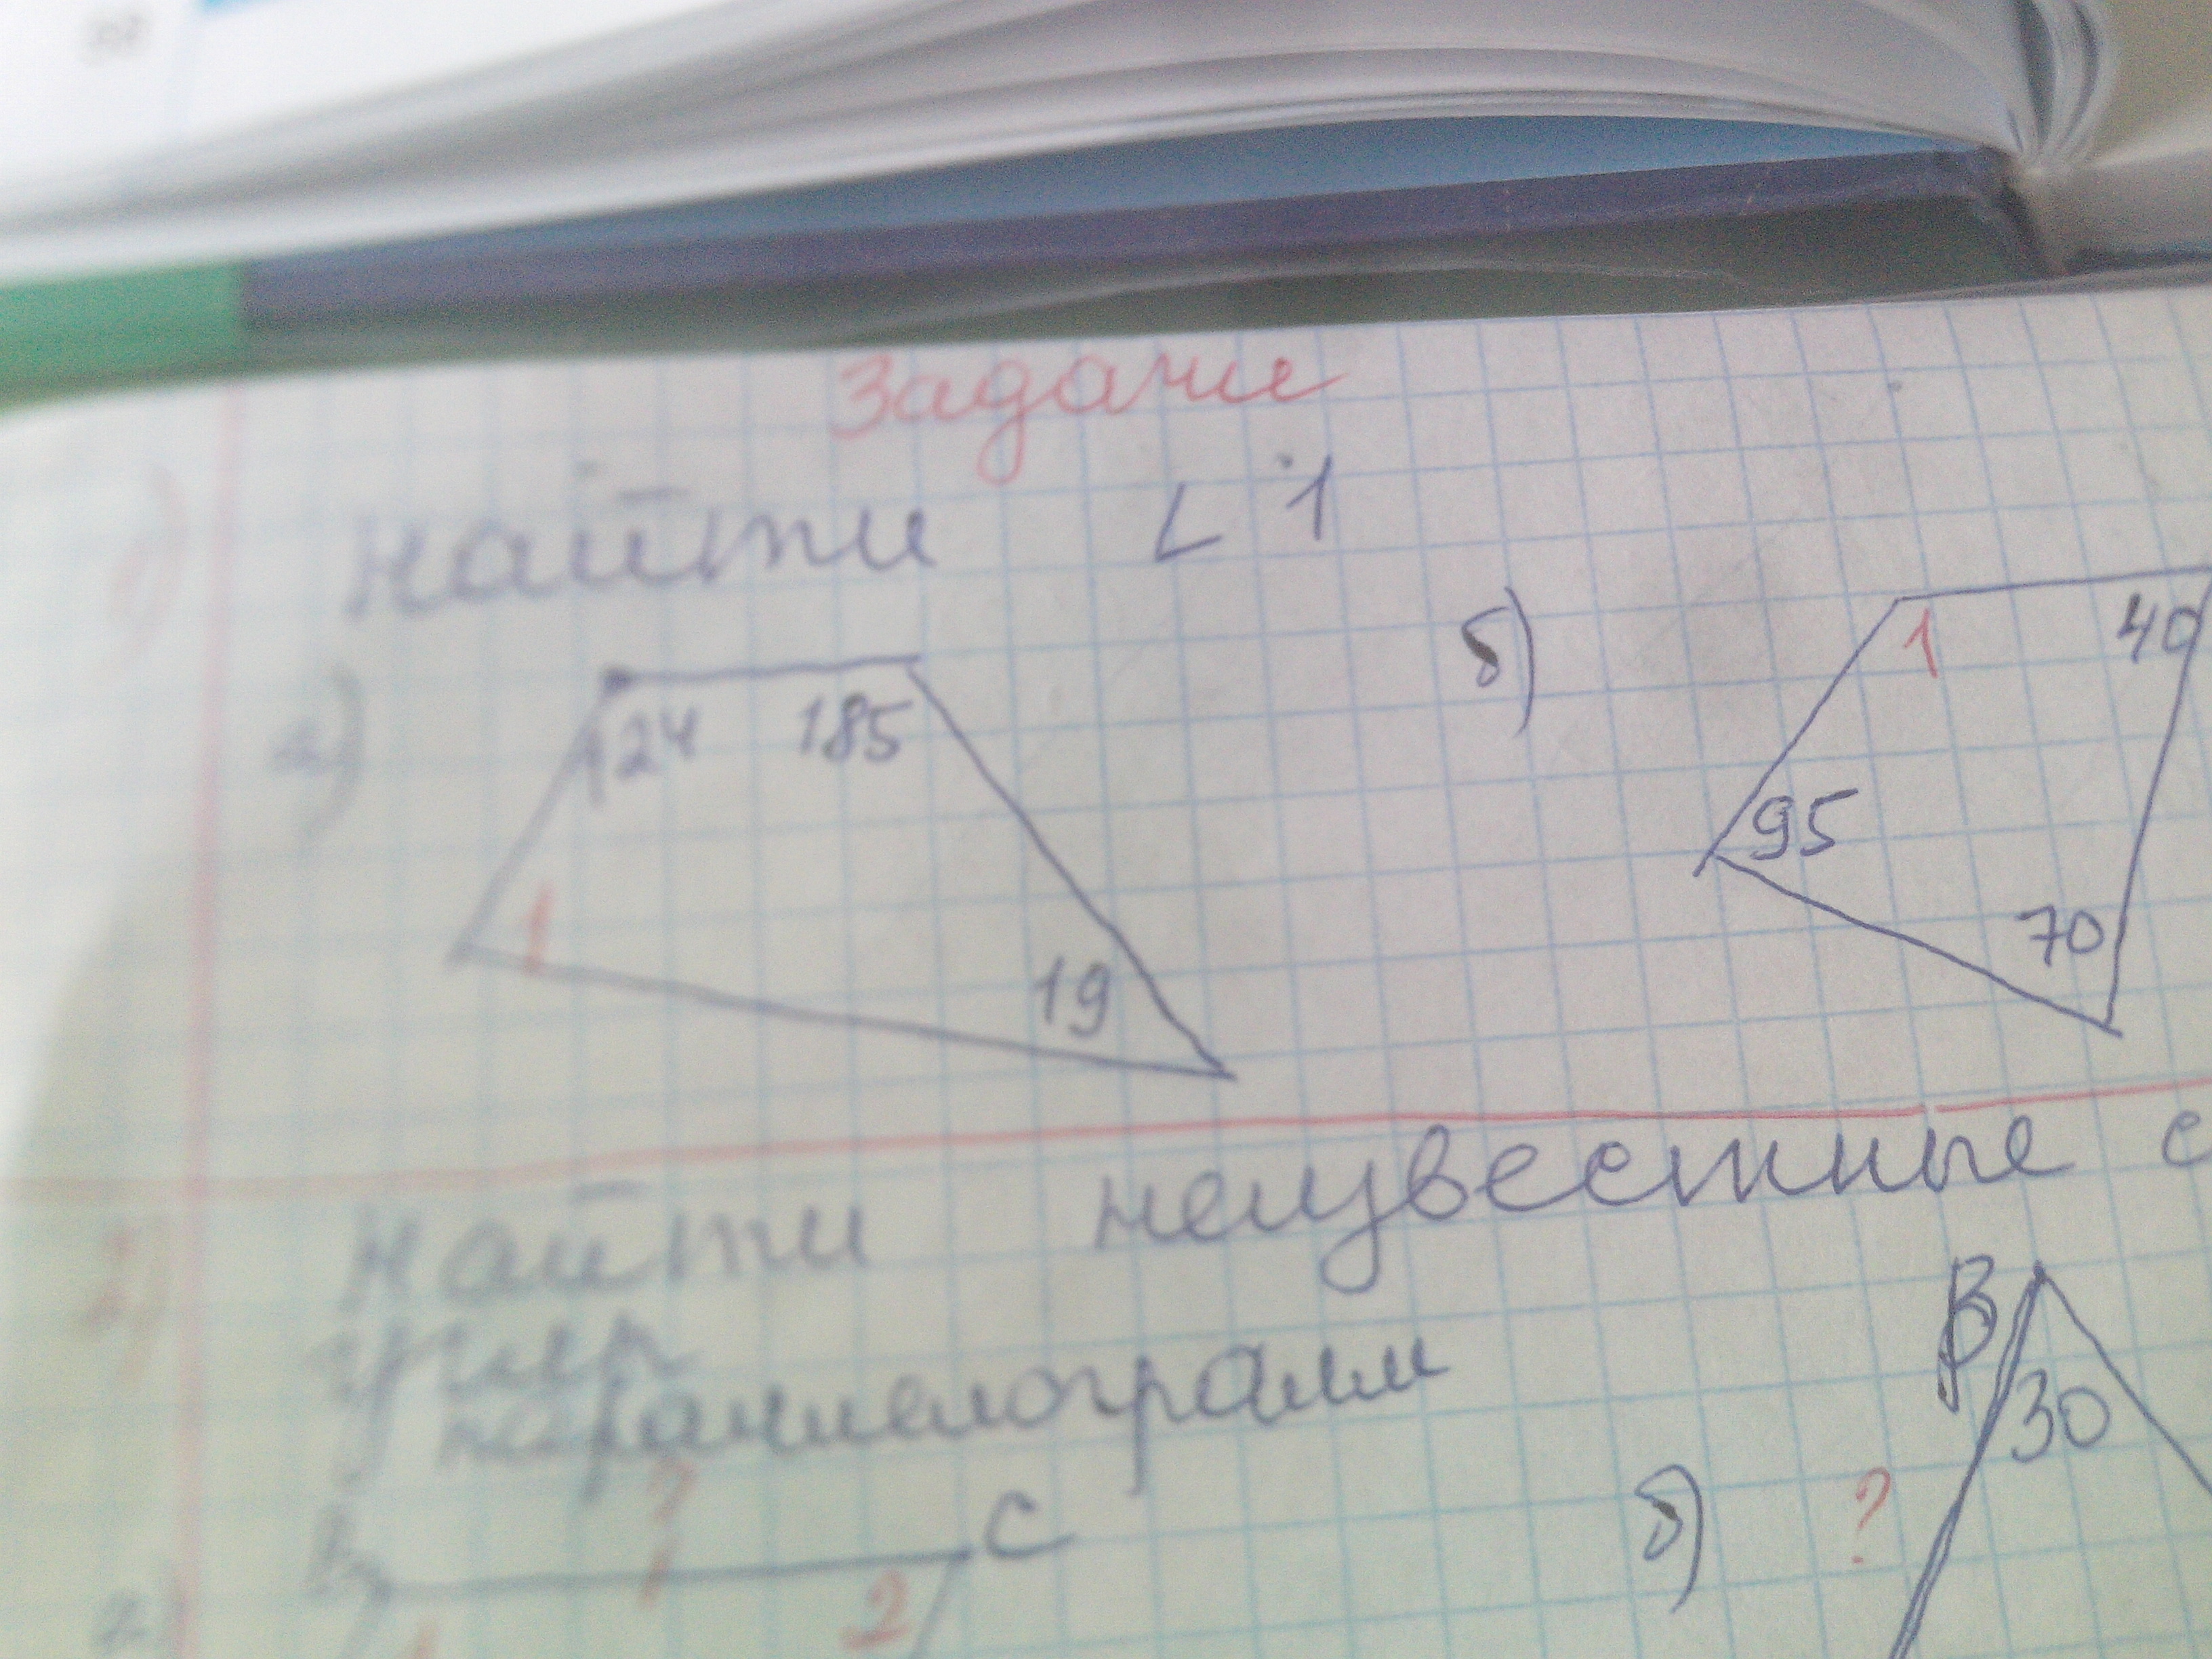 Задачи
1)
Найти ∠ 1
а)
124 185
1
19
б)
1 40
95
70
2)
Найти неизвестные с
угл
параллелограмм
?
B C
а)
1 2
б)
B
30
?